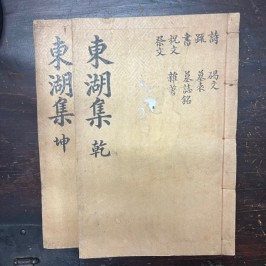 詩 碣文
疏 墓表
書 墓誌銘
祝文 雜著
祭文
東湖集 乾
東湖集 坤